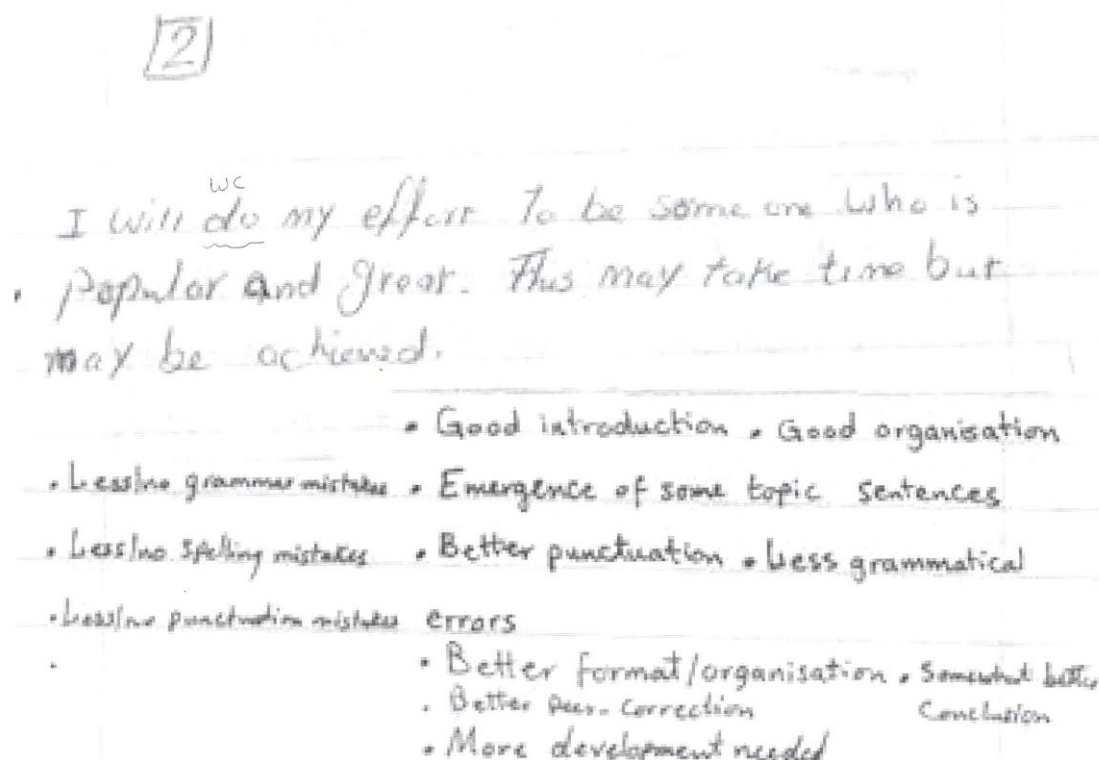 2
wc
I will do my effort to be some one who is
popular and great. This may take time but
may be achieved.
• Good introduction • Good organisation
• Less/no grammer mistakes • Emergence of some topic sentences
• Less/no spelling mistakes • Better punctuation • Less grammatical
• Less/no punctuation mistakes errors
• Better format/organisation • Somewhat better
• Better peer-correction Conclusion
• More development needed